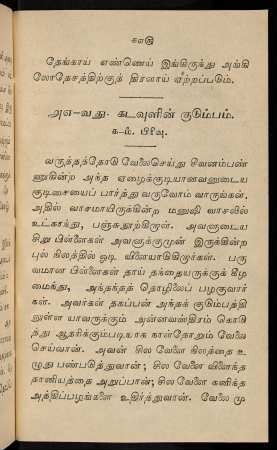 கஎடு
தேங்காய் எண்ணெய் இங்கிருந்து அங்கி
லோதேசத்திற்குத் திரளாய் ஏற்றப்படும்.
அஎ-வது. கடவுளின் குடும்பம்.
க-ம். பிரிவு.
வருத்தத்தோடு வேலைசெய்து சீவனம்பண்
ணுகின்ற அந்த ஏழைக்குடியானவனுடைய
குடிசையைப் பார்த்து வருவோம் வாருங்கள்.
அதில் வாசமாயிருகின்ற மனுஷி வாசலில்
உட்காந்து, பஞ்சுநூற்கிறாள். அவளுடைய
சிறு பிள்ளைகள் அவளுக்குமுன் இருக்கின்ற
புல் நிலத்தில் ஓடி விளையாடுகிறார்கள். பரு
வமான பிள்ளைகள் தாய் தந்தையருக்குக் கீழ
மைந்து, அந்தந்தத் தொழிலைப் பழகுவார்
கள். அவர்கள் தகப்பன் அந்தக் குடும்பத்தி
லுள்ள யாவருக்கும் அன்னவஸ்திரம் கொடு
த்து ஆதரிக்கும்படியாக நாள்தோறும் வேலை
செய்வான். அவன் சில வேளை நிலத்தை உ
ழுது பண்படுத்துவான்; சில வேளை விளைந்த
தானியத்தை அறுப்பான்; சில வேளை கனிந்த
அத்திப்பழங்களை உதிர்த்துவான். வேலை மு